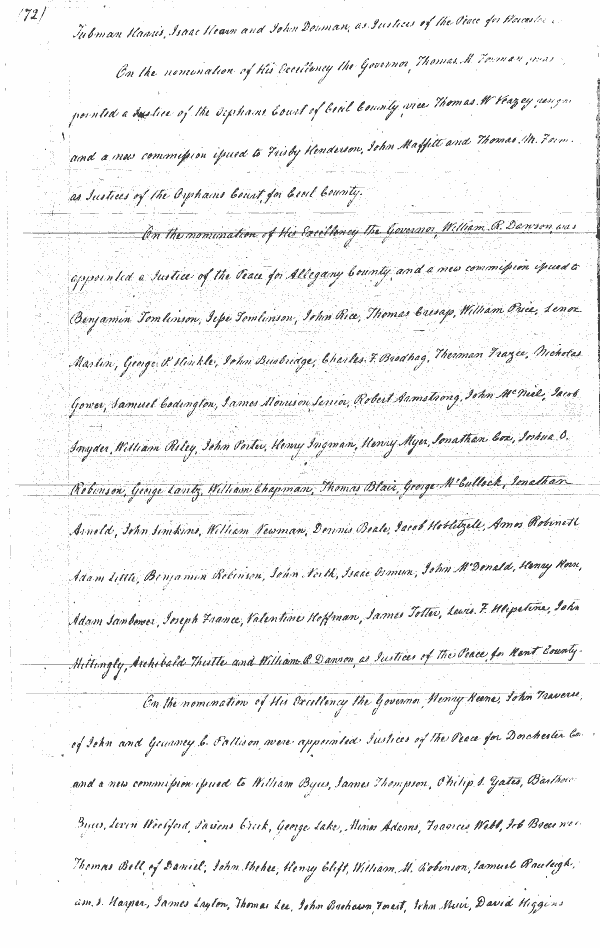 172/
Tubman Harris, Isaac Hearn and John Dorman, as Justices of the Peace for Worcester
On the nomination of His Excellency the Governor, Thomas M. Forman, was
pointed a Justice of the Orphans Court of Cecil County, vice Thomas W Veazey
and a new commission issued to Frisby Henderson, John Maffitt and Thomas M. Form
as Justices of the Orphans Court, for Cecil County.
On the nomination of His Excellency the Governor, William R. Dawson, was
appointed a Justice of the Peace for Allegany County, and a new commission issued to
Benjamin Tomlinson, Jesse Tomlinson, John Rice, Thomas Cresap, William Price, Lenox
Martin, George P. Hinkle, John Burbridge, Charles F. Brodhag, Therman Frazee, Nicholas
Gower, Samuel Codington, James Morrison, Senior, Robert Armstrong, John McNeil, Jacob
Snyder, William Riley, John Porter, Henry Ingman, Henry Myer, Jonathan Cox, Joshua O.
Robinson, George Lantz, William Chapman, Thomas Blair, George McCullock, Jonathan
Arnold, John Simkins, William Newman, Dennis Beale, Jacob Hoblitzell, Amos Robinett
Adam Little, Benjamin Robinson, John North, Isaac Osmun, John McDonald, Henry Korn,
Adam Sanbower, Joseph France, Valentine Hoffman, James Totter, Lewis F. Klipstine, John
Mattingly, Archibald Thistle and William R. Dawson, as Justices of the Peace, for Kent County.
On the nomination of His Excellency the Governor, Henry Keene, John Traverse,
of John and Gourney C. Pattison, were appointed Justices of the Peace for Dorchester Co
and a new commission issued to William Byus, James Thompson, Philip S. Yates, Barthow
Byus, Levin Woolford, Parsons Creek, George Lake, Minos Adams, Frances Webb, Job
Thomas Bell, of Daniel, John Mehee, Henery Clift, William M. Robinson, Samuel Rawleigh,
am. S. Harper, James Layton, Thomas Lee, John Forest, John Muir, David Higgins